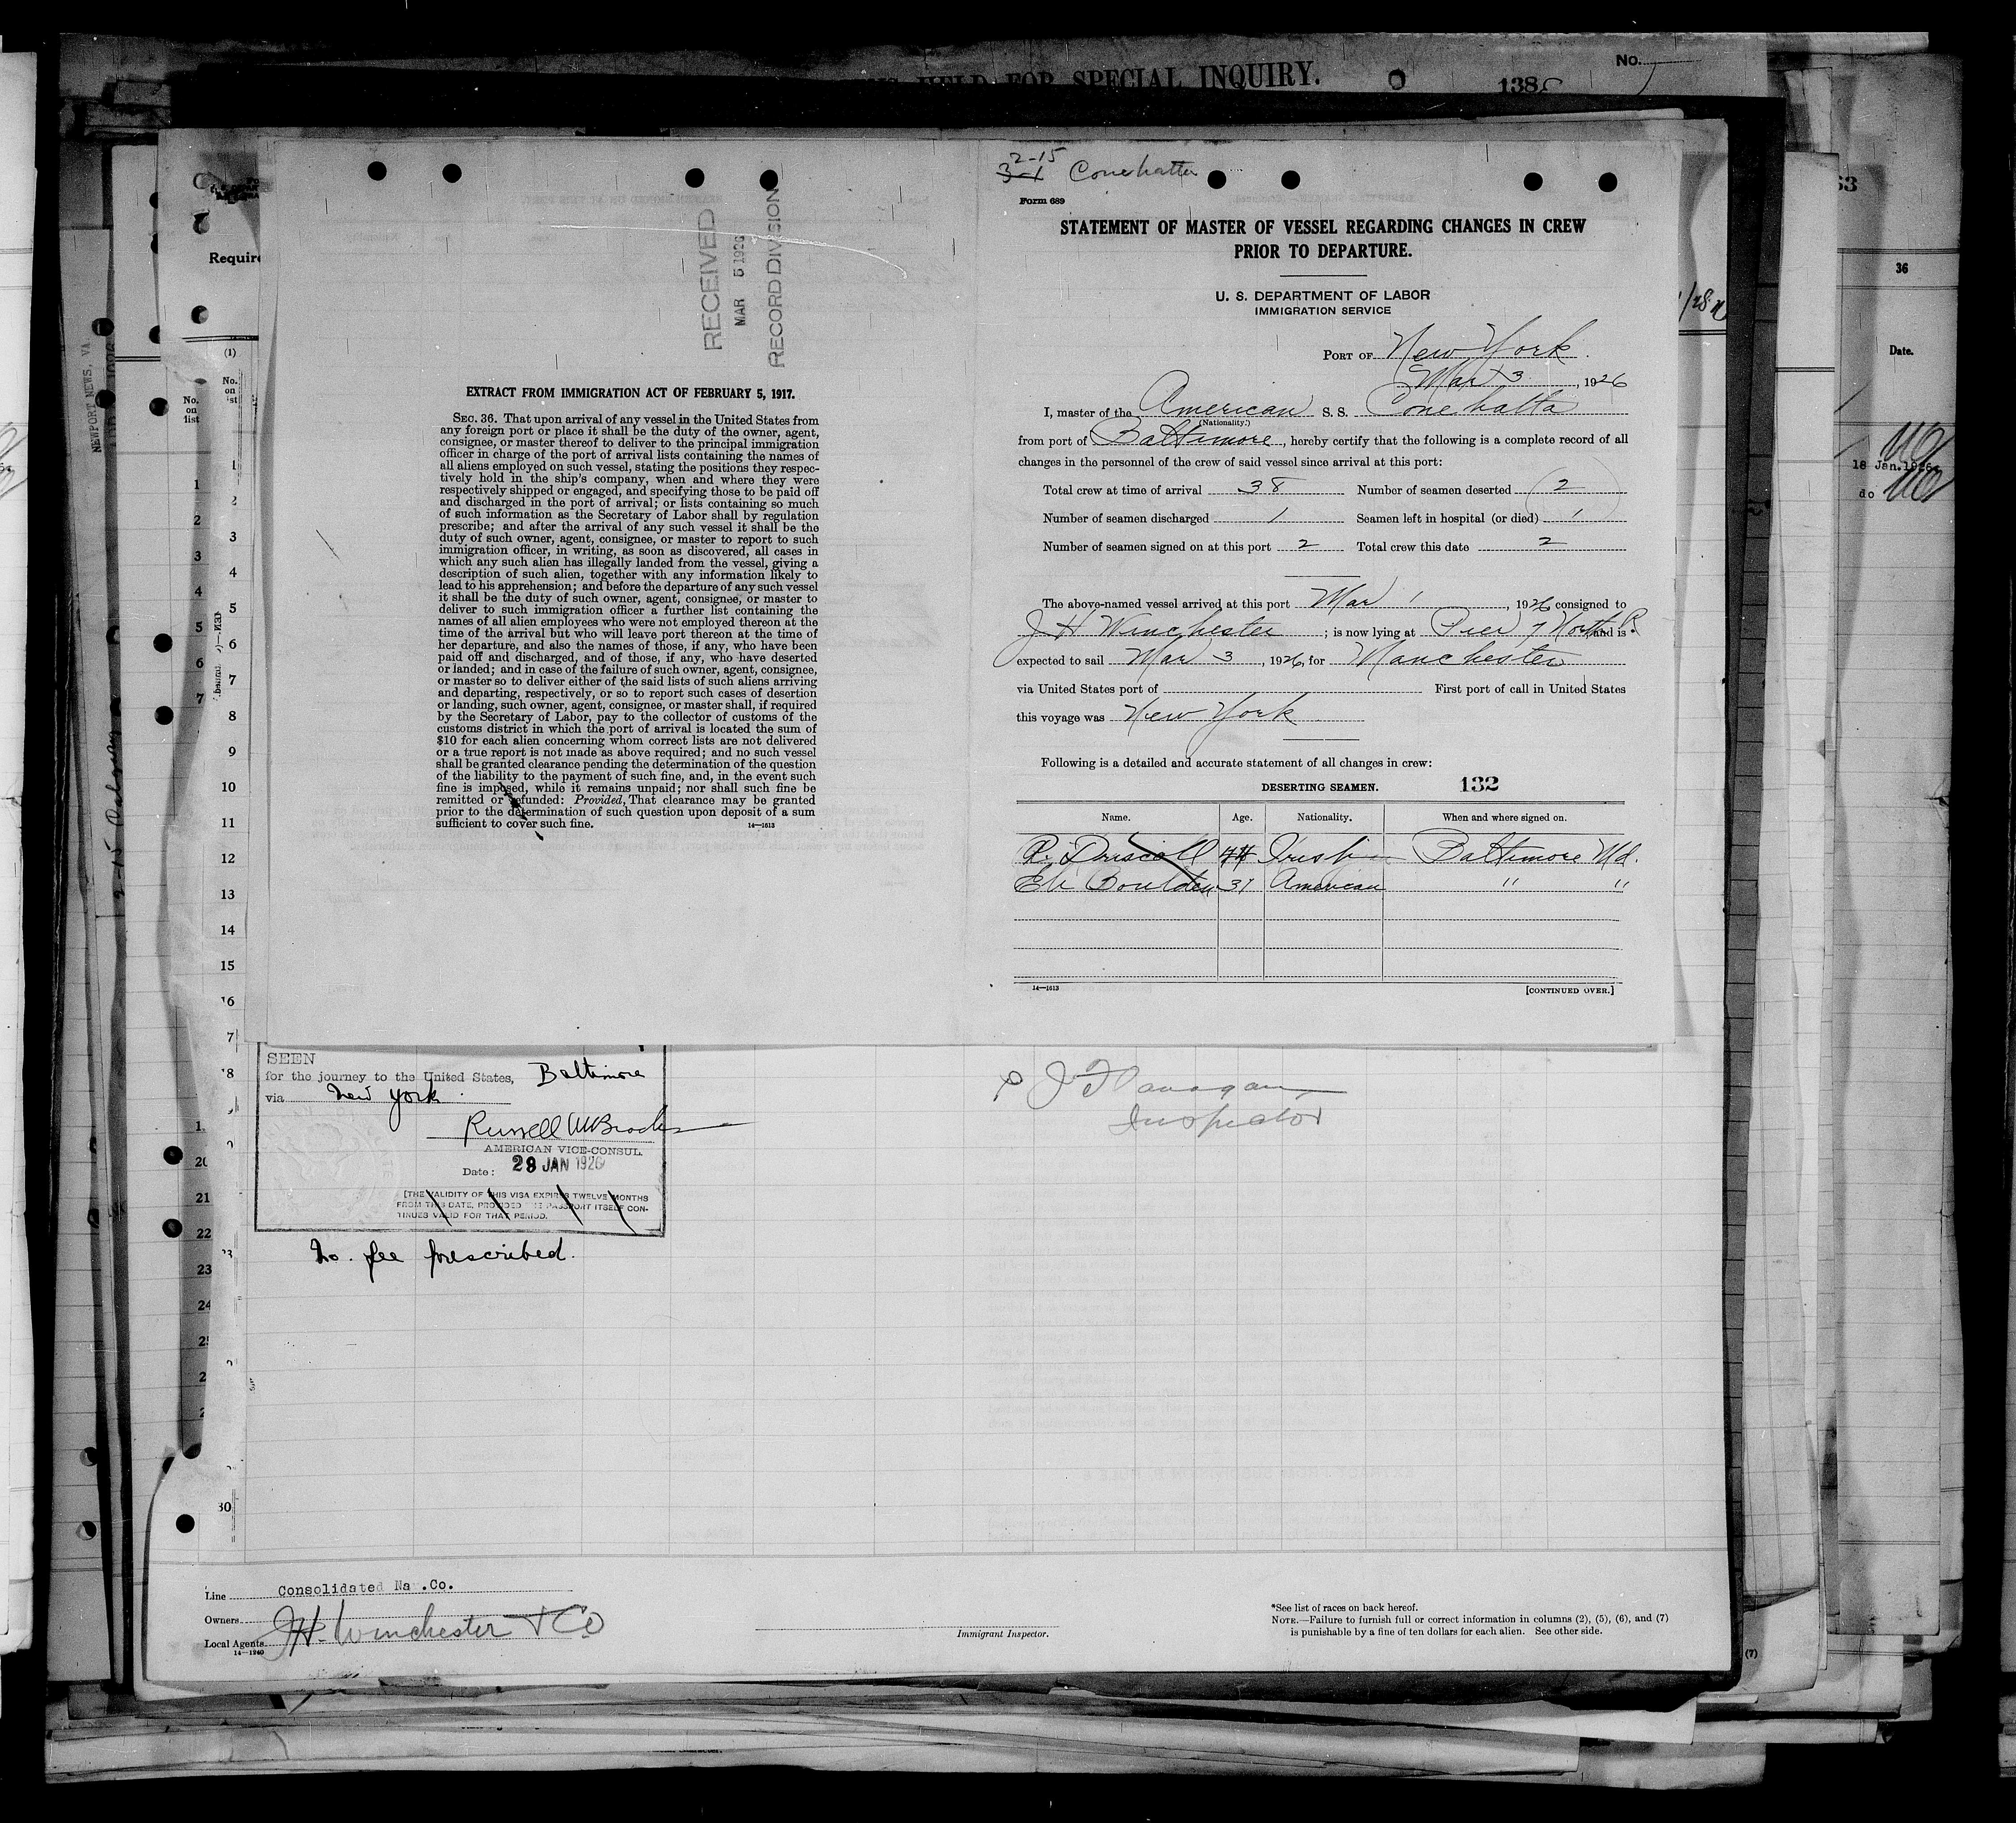 HELD FOR SPECIAL INQUIRY.
No.
138
RECEIVED
MAR 5 1926
RECORD DIVISION
EXTRACT FROM IMMIGRATION ACT OF FEBRUARY 5, 1917.
SEC. 36. That upon arrival of any vessel in the United States from
any foreign port or place it shall be the duty of the owner, agent,
consignee, or master thereof to deliver to the principal immigration
officer in charge of the port of arrival lists containing the names of
all aliens employed on such vessel, stating the positions they respec-
tively hold in the ship's company, when and where they were
respectively shipped or engaged, and specifying those to be paid off
and discharged in the port of arrival; or lists containing so much
of such information as the Secretary of Labor shall by regulation
prescribe; and after the arrival of any such vessel it shall be the
duty of such owner, agent, consignee, or master to report to such
immigration officer, in writing, as soon as discovered, all cases in
which any such alien has illegally landed from the vessel, giving a
description of such alien, together with any information likely to
lead to his apprehension; and before the departure of any such vessel
it shall be the duty of such owner, agent, consignee, or master to
deliver to such immigration officer a further list containing the
names of all alien employees who were not employed thereon at the
time of the arrival but who will leave port thereon at the time of
her departure, and also the names of those, if any, who have been
paid off and discharged, and of those, if any, who have deserted
or landed; and in case of the failure of such owner, agent, consignee,
or master so to deliver either of the said lists of such aliens arriving
and departing, respectively, or so to report such cases of desertion
or landing, such owner, agent, consignee, or master shall, if required
by the Secretary of Labor, pay to the collector of customs of the
customs district in which the port of arrival is located the sum of
$10 for each alien concerning whom correct lists are not delivered
or a true report is not made as above required; and no such vessel
shall be granted clearance pending the determination of the question
of the liability to the payment of such fine, and, in the event such
fine is imposed, while it remains unpaid; nor shall such fine be
remitted or refunded: Provided, That clearance may be granted
prior to the determination of such question upon deposit of a sum
sufficient to cover such fine.
14—1613
2-15
3-1 Conehatta
Form 689
STATEMENT OF MASTER OF VESSEL REGARDING CHANGES IN CREW
PRIOR TO DEPARTURE.
U. S. DEPARTMENT OF LABOR
IMMIGRATION SERVICE
PORT OF New York.
Mar 3, 1926
I, master of the American S. S. Conehatta
(Nationality.)
from port of Baltimore, hereby certify that the following is a complete record of all
changes in the personnel of the crew of said vessel since arrival at this port:
Total crew at time of arrival 38 Number of seamen deserted 2
Number of seamen discharged 1 Seamen left in hospital (or died) 1
Number of seamen signed on at this port 2 Total crew this date 2
The above-named vessel arrived at this port Mar 1, 1926 consigned to
J H Winchester; is now lying at Pier 7 North R and is
expected to sail Mar 3, 1926, for Manchester
via United States port of First port of call in United States
this voyage was New York
Following is a detailed and accurate statement of all changes in crew:
DESERTING SEAMEN. 132
Name. Age. Nationality. When and where signed on.
R. Driscoll 44 Irish Baltimore Md.
Eli Boulden 31 American " "
14—1613
[CONTINUED OVER.]
SEEN
for the journey to the United States, Baltimore
via New York.
AMERICAN VICE-CONSUL.
Date: 29 JAN 1926
[THE VALIDITY OF THIS VISA EXPIRES TWELVE MONTHS
FROM THIS DATE, PROVIDED THE PASSPORT ITSELF CON-
TINUES VALID FOR THAT PERIOD.
No. fee prescribed.
J Flanagan
Inspector
Line Consolidated Na .Co.
Owners
Local Agents JH. Winchester & Co
14—1240
Immigrant Inspector.
*See list of races on back hereof.
NOTE.—Failure to furnish full or correct information in columns (2), (5), (6), and (7)
is punishable by a fine of ten dollars for each alien. See other side.
36
Date.
18 Jan.1926
do
NEWPORT NEWS, VA